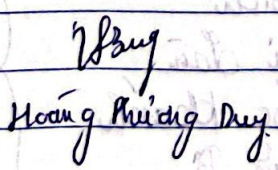 Hoàng Phương Duy